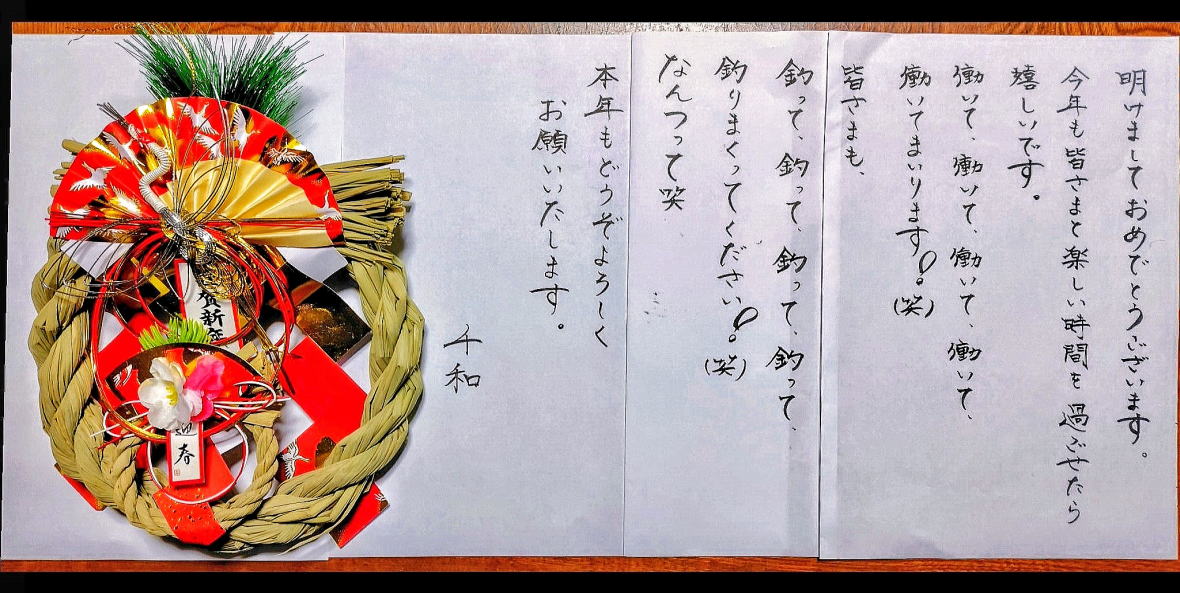 明けましておめでとうございます。
今年も皆さまと楽しい時間を過ごせたら
嬉しいです。
働いて、働いて、働いて、働いて、
働いてまいります!(笑)
皆さまも、
釣って、釣って、釣って、釣って、
釣りまくってください!(笑)
なんつって笑
本年もどうぞよろしく
お願いいたします。
千和
賀新年
迎春